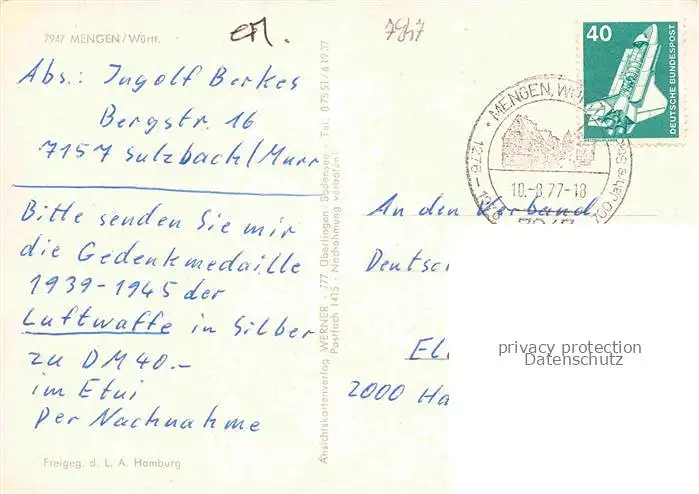 7947 MENGEN/Württ.
7947
40
DEUTSCHE BUNDESPOST
Abs.: Ingolf Berkes
Bergstr. 16
7157 Sulzbach/Murr
Bitte senden Sie mir
die Gedenkmedaille
1939-1945 der
Luftwaffe in Silber
zu DM 40.-
im Etui
Per Nachnahme
Freigeg. d. L. A. Hamburg
Ansichtskartenverlag WERNER · 777 Überlingen/Bodensee · Tel. 07551/61937
Postfach 1415 · Nachahmung verboten!
MENGEN, WÜ
1276 1976
700 Jahre
10.-8.77-18
An den Verband
Deutsc
El
2000 Ha
privacy protection
Datenschutz